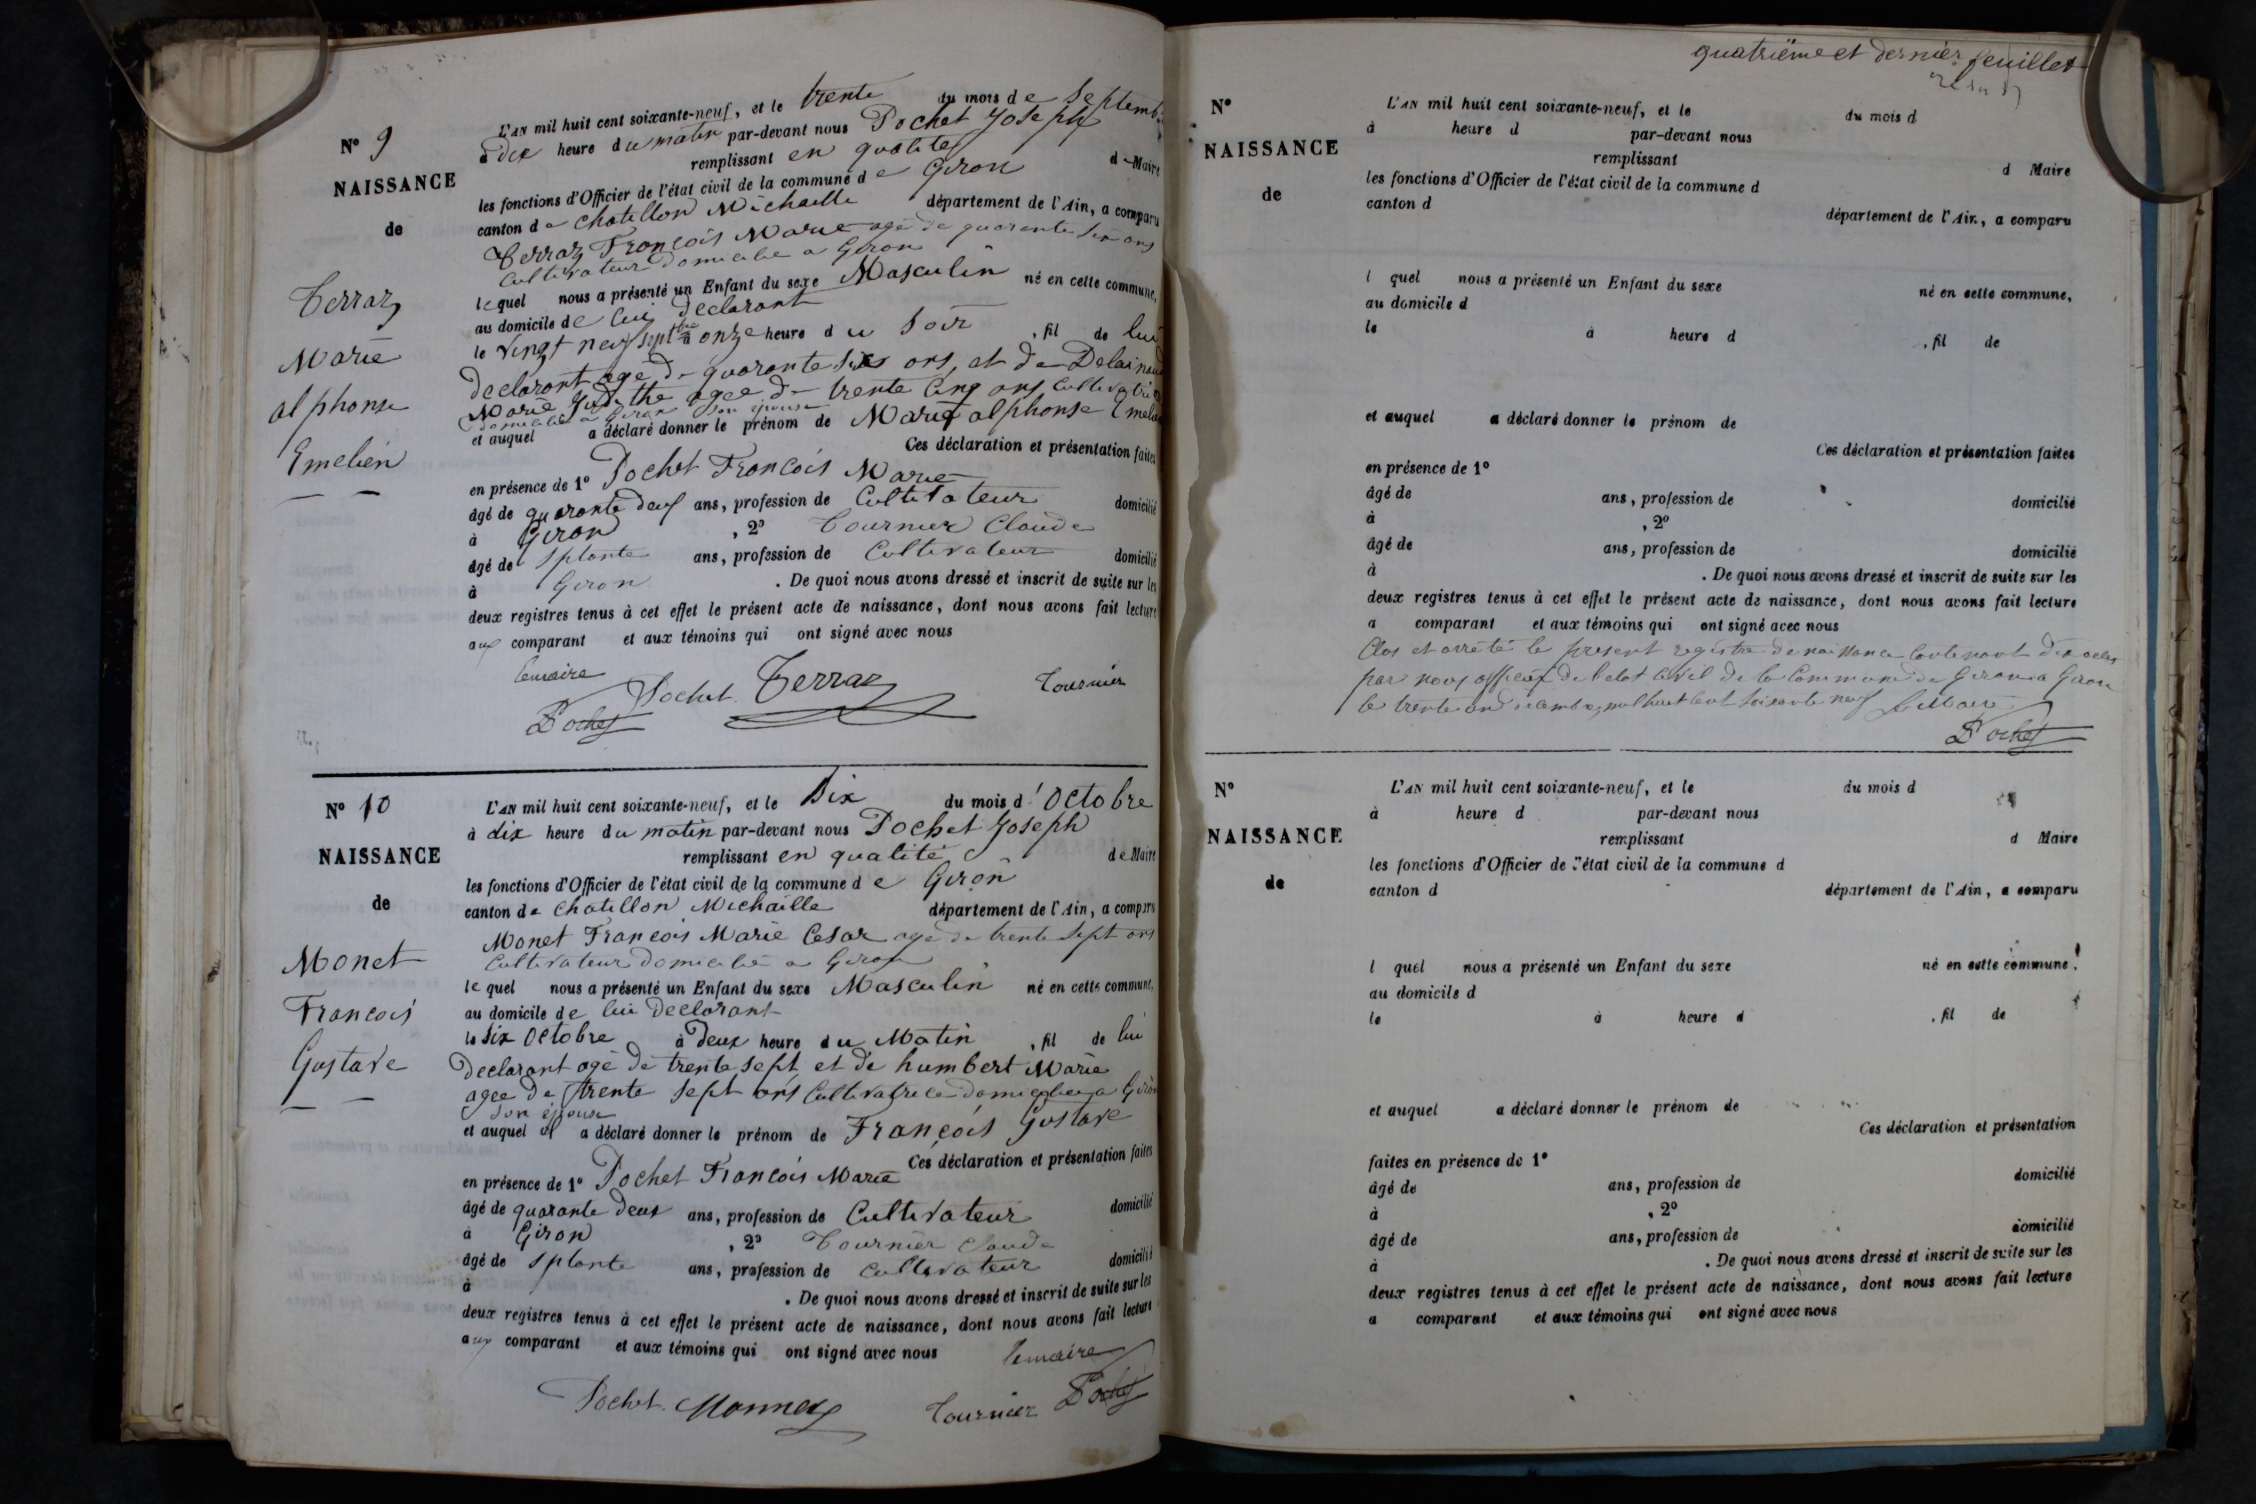 N° 9
NAISSANCE
de
Terraz
Marie
alphonse
Emelien
L'AN mil huit cent soixante-neuf, et le trente du mois de Septemb
à dix heure du matin par-devant nous Pochet Joseph
remplissant en qualité de Maire
les fonctions d'Officier de l'état civil de la commune de Giron
canton de Chatillon Michaille département de l'Ain, a comparu
Terraz François Marie agé de quarante six ans
Cultivateur domicilié a Giron
lequel nous a présenté un Enfant du sexe Masculin né en cette commune,
au domicile de lui declarant
le vingt neuf Sept.bre à onze heure du Soir, fil de lui
declarant agé de quarante six ans, et de Delainaud
Marie Judithe agee de trente cinq ans Cultivatrice
domiciliée a Giron son epouse
et auquel a déclaré donner le prénom de Marie alphonse Emelien
Ces déclaration et présentation faites
en présence de 1° Pochet François Marie
âgé de quarante deux ans, profession de Cultivateur domicilié
à Giron, 2° Tournier Claude
âgé de Sptante ans, profession de Cultivateur domicilié
à Giron. De quoi nous avons dressé et inscrit de suite sur les
deux registres tenus à cet effet le présent acte de naissance, dont nous avons fait lecture
aux comparant et aux témoins qui ont signé avec nous
lemaire
Pochet Terraz Tournier
Pochet
N° 10
NAISSANCE
de
Monet
Francois
Gustave
L'AN mil huit cent soixante-neuf, et le Six du mois d'Octobre
à dix heure du matin par-devant nous Pochet Joseph
remplissant en qualité de Maire
les fonctions d'Officier de l'état civil de la commune de Giron
canton de Chatillon Michaille département de l'Ain, a comparu
Monet François Marie Cesar agé de trente sept ans
Cultivateur domicilié a Giron
lequel nous a présenté un Enfant du sexe Masculin né en cette commune,
au domicile de lui Declarant
le Six Octobre à deux heure du Matin, fil de lui
Declarant agé de trente sept et de humbert Marie
agee de trente sept ans Cultivatrice domiciliée a Giron
son épouse
et auquel il a déclaré donner le prénom de François Gustave
Ces déclaration et présentation faites
en présence de 1° Pochet François Marie
âgé de quarante deux ans, profession de Cultivateur domicilié
à Giron, 2° Tournier Claude
âgé de Sptante ans, profession de Cultivateur domicilié
à . De quoi nous avons dressé et inscrit de suite sur les
deux registres tenus à cet effet le présent acte de naissance, dont nous avons fait lecture
aux comparant et aux témoins qui ont signé avec nous
lemaire
Pochet Monnet Tournier Pochet
quatrième et dernier feuillet
N°
NAISSANCE
de
L'AN mil huit cent soixante-neuf, et le du mois d
à heure d par-devant nous
remplissant d Maire
les fonctions d'Officier de l'état civil de la commune d
canton d département de l'Ain, a comparu
l quel nous a présenté un Enfant du sexe né en cette commune,
au domicile d
le à heure d , fil de
et auquel a déclaré donner le prénom de
Ces déclaration et présentation faites
en présence de 1°
âgé de ans, profession de domicilié
à , 2°
âgé de ans, profession de domicilié
à . De quoi nous avons dressé et inscrit de suite sur les
deux registres tenus à cet effet le présent acte de naissance, dont nous avons fait lecture
a comparant et aux témoins qui ont signé avec nous
Clos et arrêté le present registre de naissance contenant dix actes
par nous officier de l'etat civil de la Commune de Giron a Giron
le trente un decembre mil huit cent soixante neuf Le Maire
Pochet
N°
NAISSANCE
de
L'AN mil huit cent soixante-neuf, et le du mois d
à heure d par-devant nous
remplissant d Maire
les fonctions d'Officier de l'état civil de la commune d
canton d département de l'Ain, a comparu
l quel nous a présenté un Enfant du sexe né en cette commune,
au domicile d
le à heure d , fil de
et auquel a déclaré donner le prénom de
Ces déclaration et présentation
faites en présence de 1°
âgé de ans, profession de domicilié
à , 2°
âgé de ans, profession de domicilié
à . De quoi nous avons dressé et inscrit de suite sur les
deux registres tenus à cet effet le présent acte de naissance, dont nous avons fait lecture
a comparant et aux témoins qui ont signé avec nous